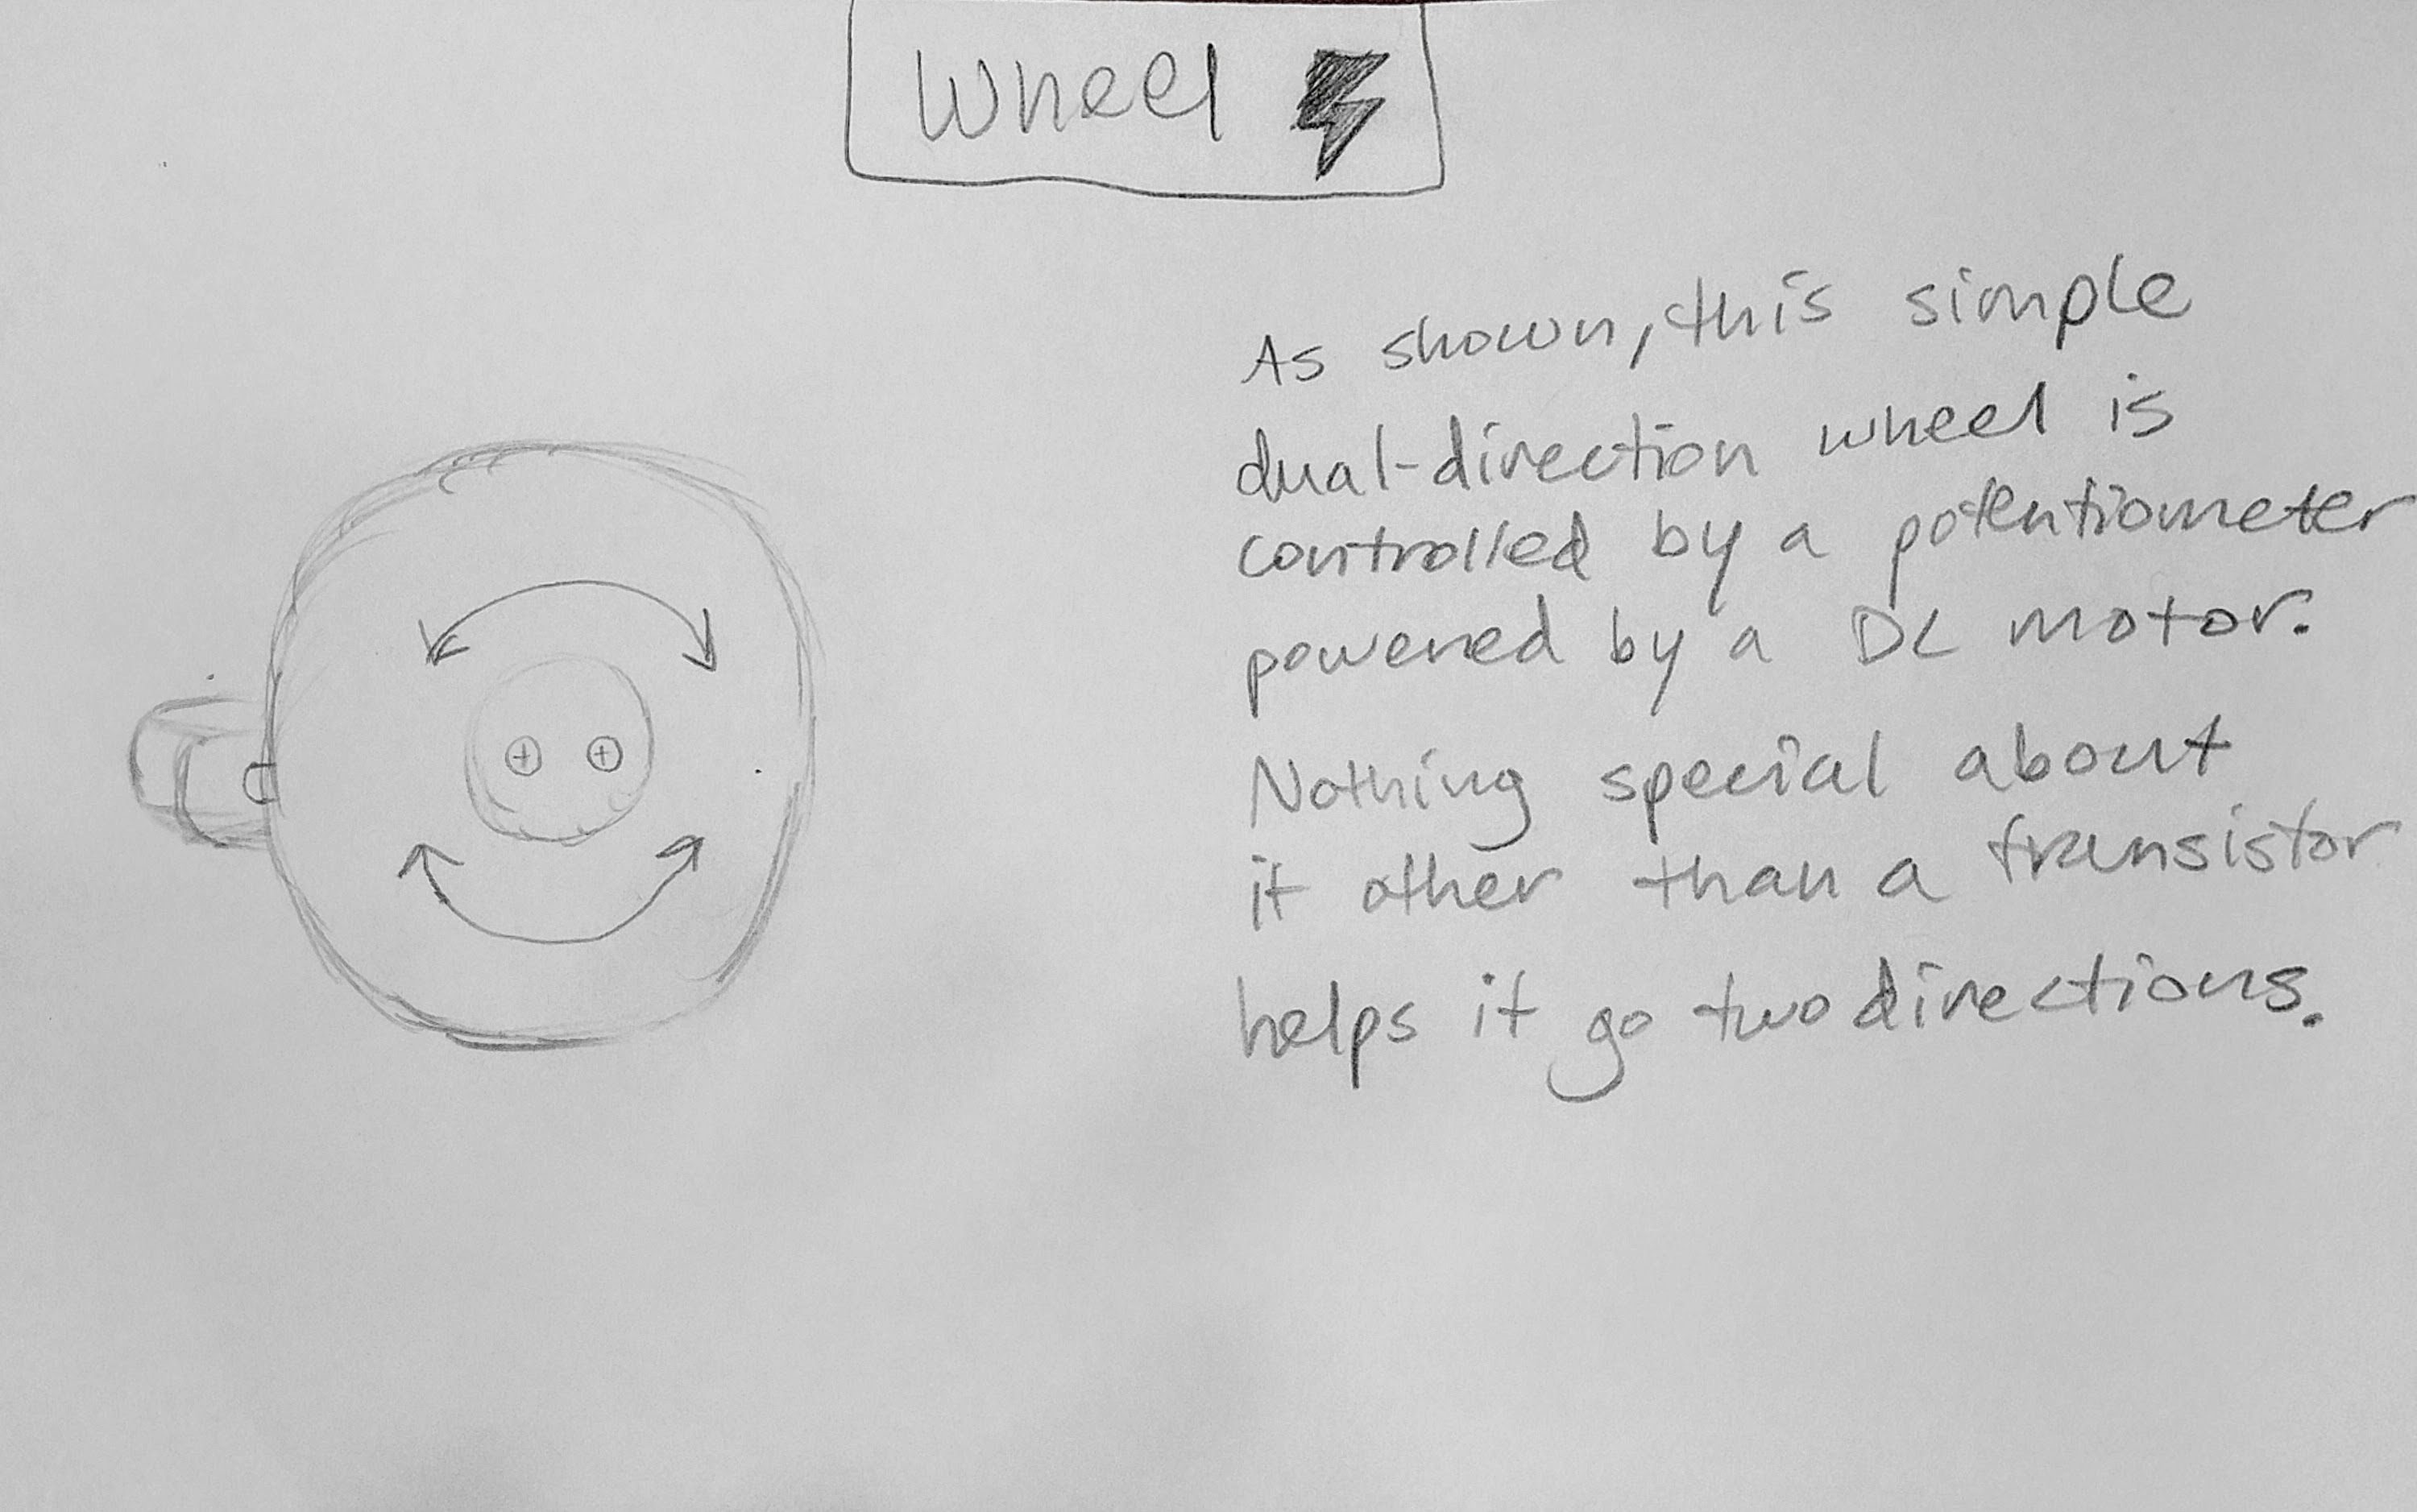 Wheel
As shown, this simple
dual-direction wheel is
controlled by a potentiometer
powered by a DC motor.
Nothing special about
it other than a transistor
helps it go two directions.